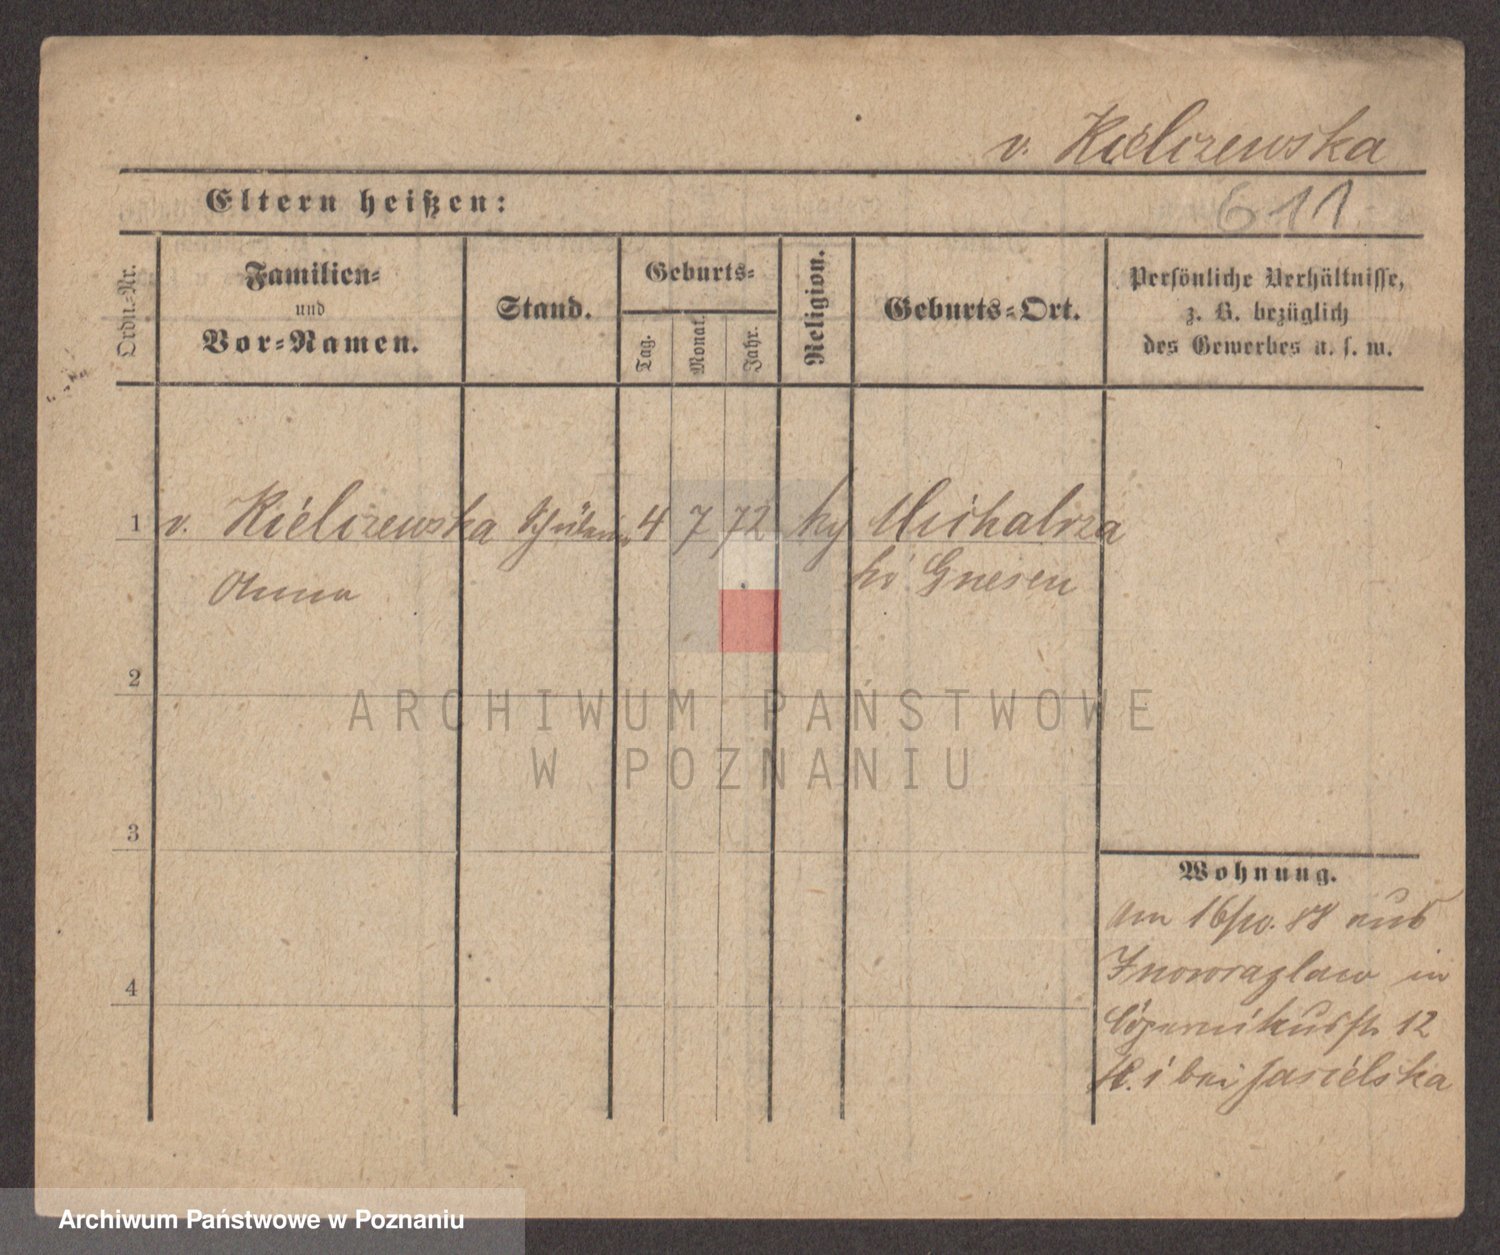 v. Kiélczewska
Eltern heißen:
611
Ordn.-Nr.
Familien-
und
Vor-Namen.
Stand.
Geburts-
Tag.
Monat.
Jahr.
Religion.
Geburts-Ort.
Persönliche Verhältnisse,
z. B. bezüglich
des Gewerbes u. s. w.
1 v. Kiélczewska Schülerin 4 7 72 Michalcza
Anna Gnesen
2
ARCHIWUM PAŃSTWOWE
W POZNANIU
3
4
Wohnung.
Am 16/10. 88 aus
Inowrazlaw in
12
bei Jasiélska
Archiwum Państwowe w Poznaniu